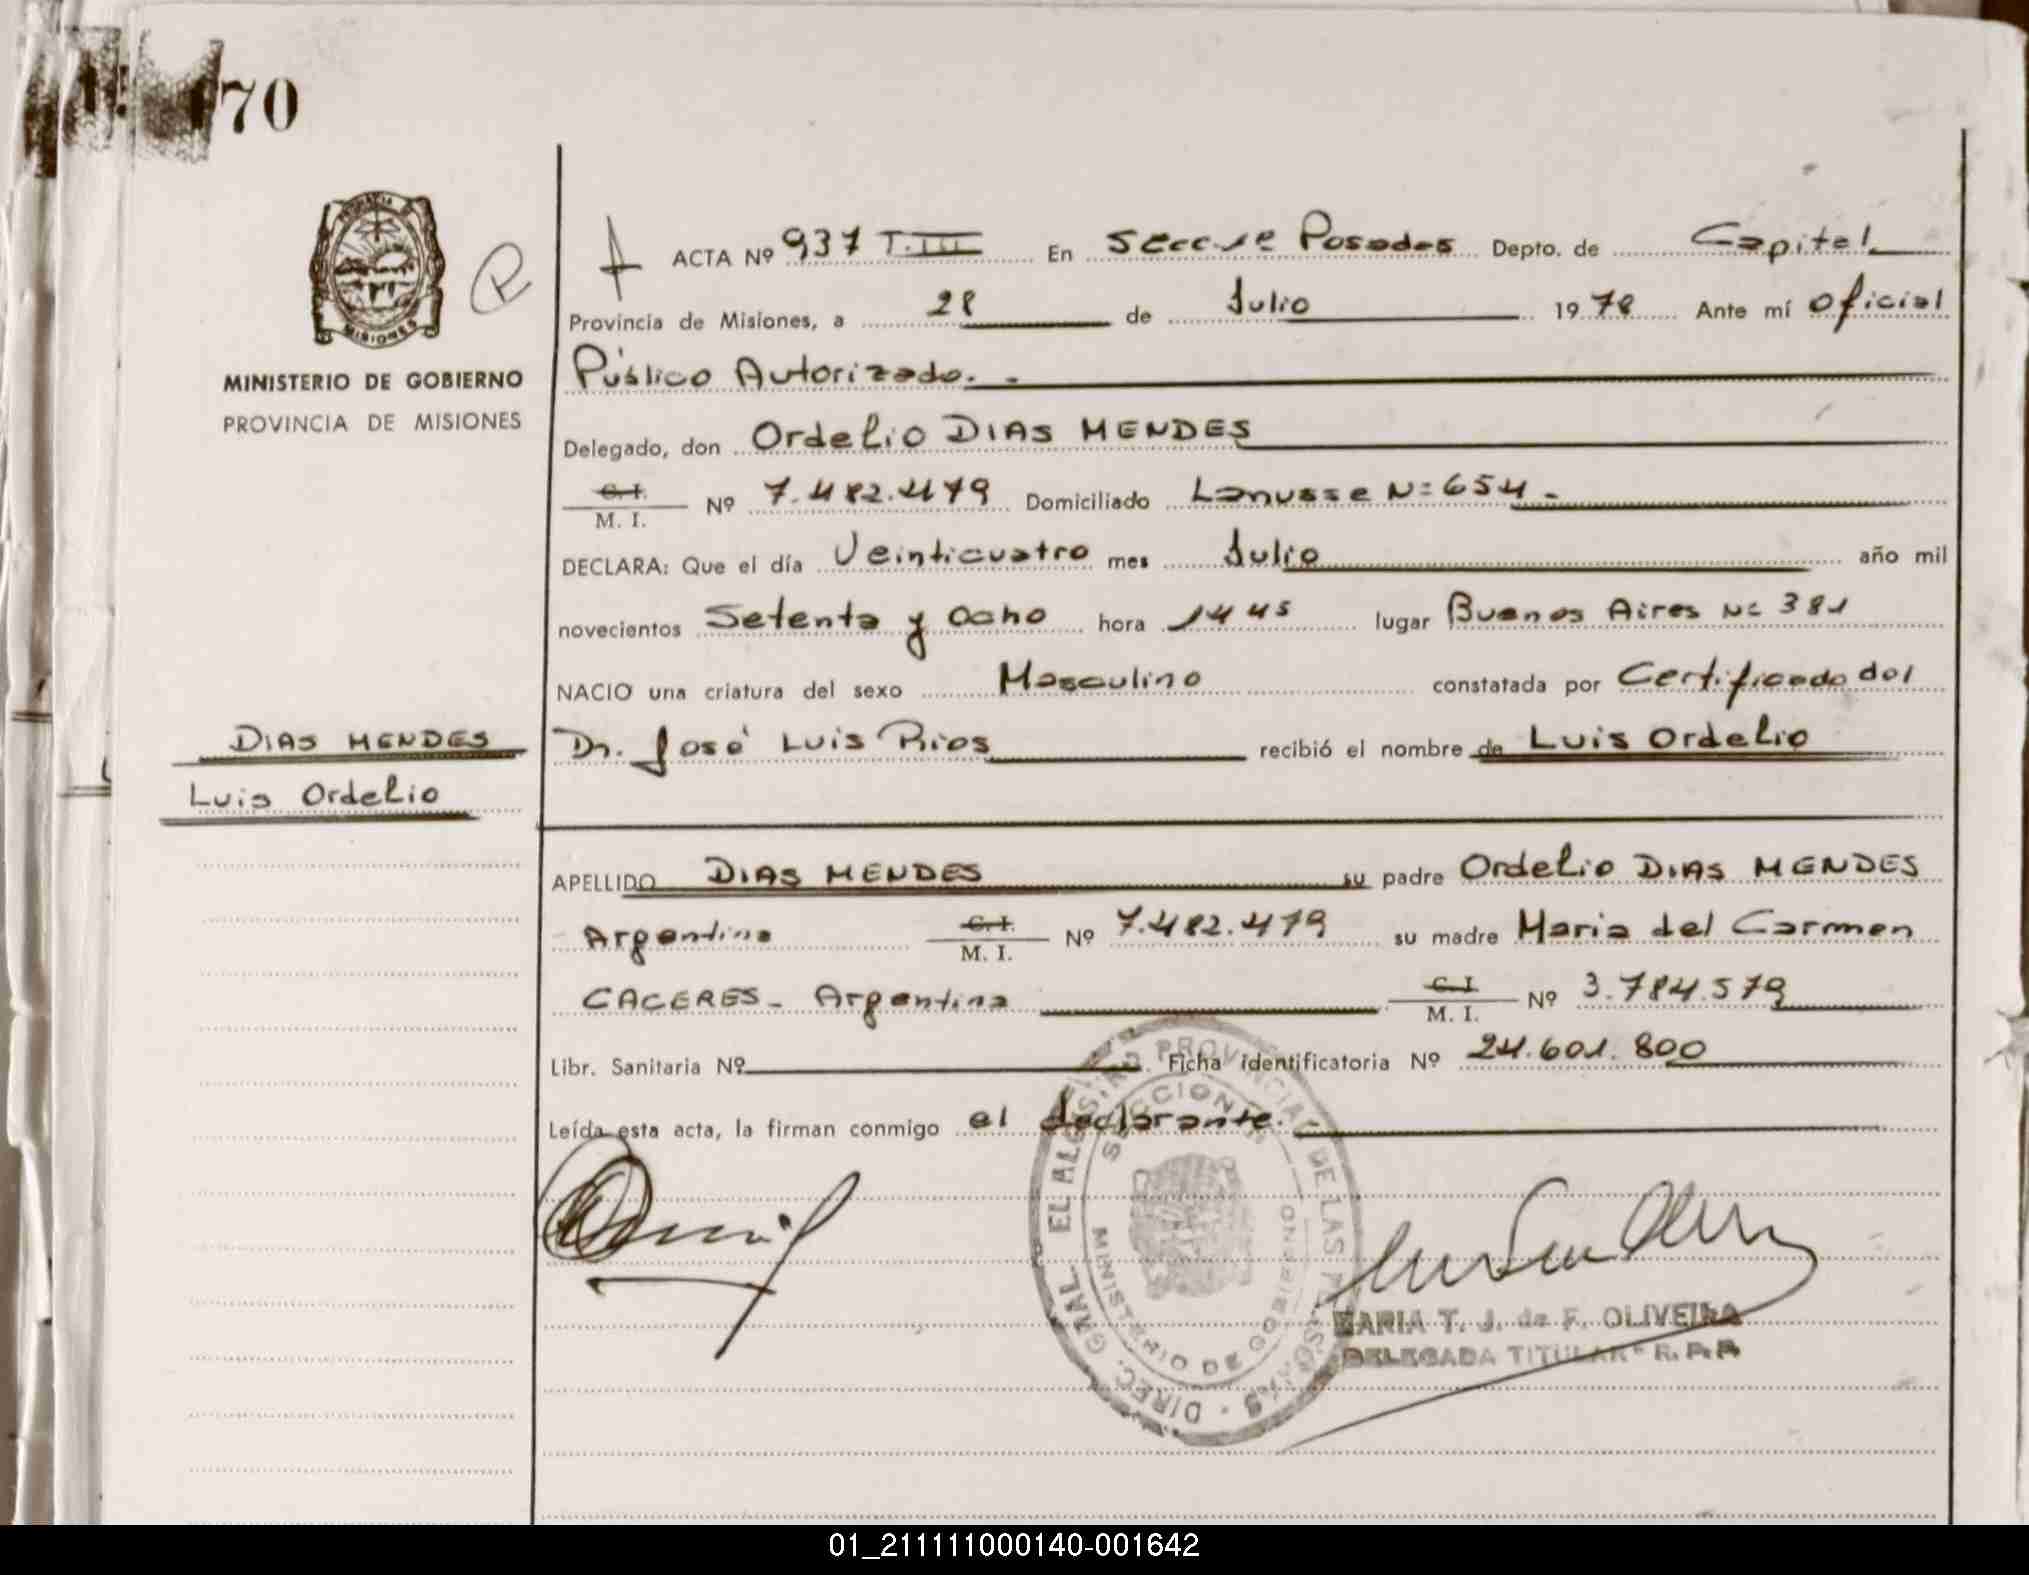 70
MINISTERIO DE GOBIERNO
PROVINCIA DE MISIONES
MISIONES
R
DIAS MENDES
Luis Ordelio
ACTA Nº 937 T.III En Secc 1ª Posadas Depto. de Capital
Provincia de Misiones, a 28 de Julio 1978 Ante mí oficial
Público Autorizado.-
Delegado, don Ordelio DIAS MENDES
C. I. M. I. Nº 7.482.479 Domiciliado Lanusse Nº 654.-
DECLARA: Que el día Veinticuatro mes Julio año mil
novecientos Setenta y Ocho hora 14 45 lugar Buenos Aires Nº 381
NACIO una criatura del sexo Masculino constatada por Certificado del
Dr. José Luis Rios recibió el nombre de Luis Ordelio
APELLIDO DIAS MENDES su padre Ordelio DIAS MENDES
Argentina C. I. M. I. Nº 7.482.479 su madre Maria del Carmen
CACERES - Argentina C. I. M. I. Nº 3.784.579
Libr. Sanitaria Nº Ficha identificatoria Nº 24.601.800
Leída esta acta, la firman conmigo el declarante.-
DIREC. GRAL. DE LAS
MINISTERIO DE GOBIERNO
MARIA T. J. de F. OLIVEIRA
DELEGADA TITULAR R. P. P.
01_211111000140-001642